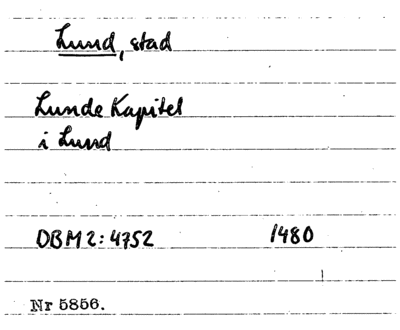 Lund, stad
Lunde Kapitel
i Lund
DBM 2: 4752 1480
Nr 5856.